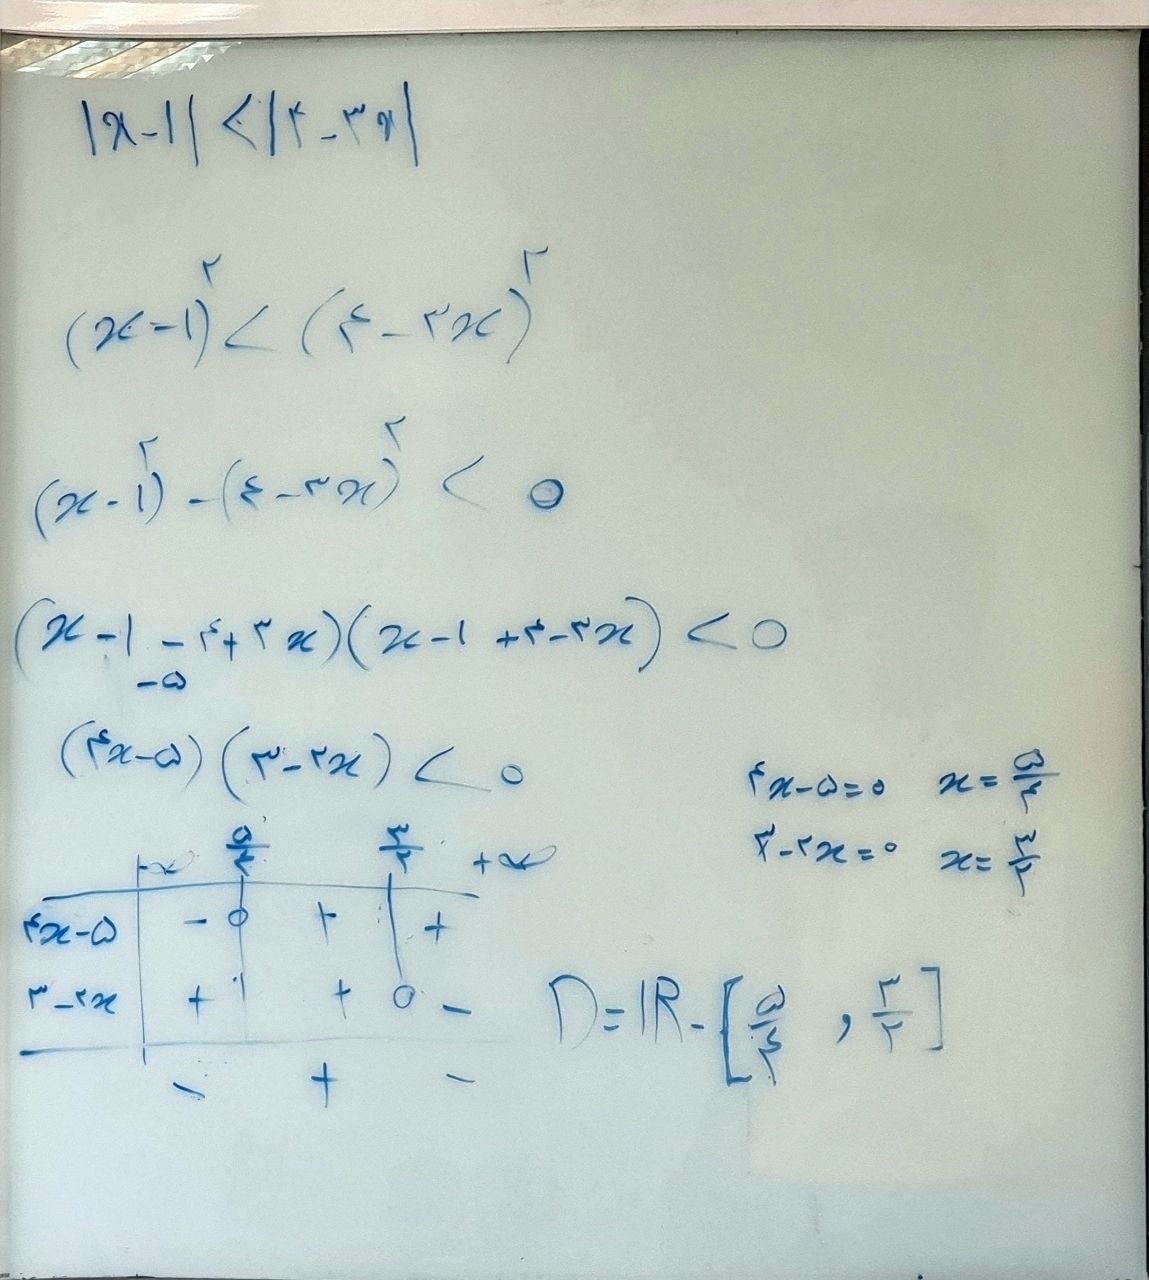 |x-۱| < |۴-۳x|
(x-۱)^۲ < (۴-۳x)^۲
(x-۱)^۲ - (۴-۳x)^۲ < ۰
(x-۱-۴+۳x)(x-۱+۴-۳x) < ۰
-۵
(۴x-۵)(۳-۲x) < ۰
۴x-۵=۰ x=۵/۴
۳-۲x=۰ x=۳/۲
-∞ ۵/۴ ۳/۲ +∞
۴x-۵ - ۰ + +
۳-۲x + + ۰ -
- + -
D=IR-[۵/۴ , ۳/۲]